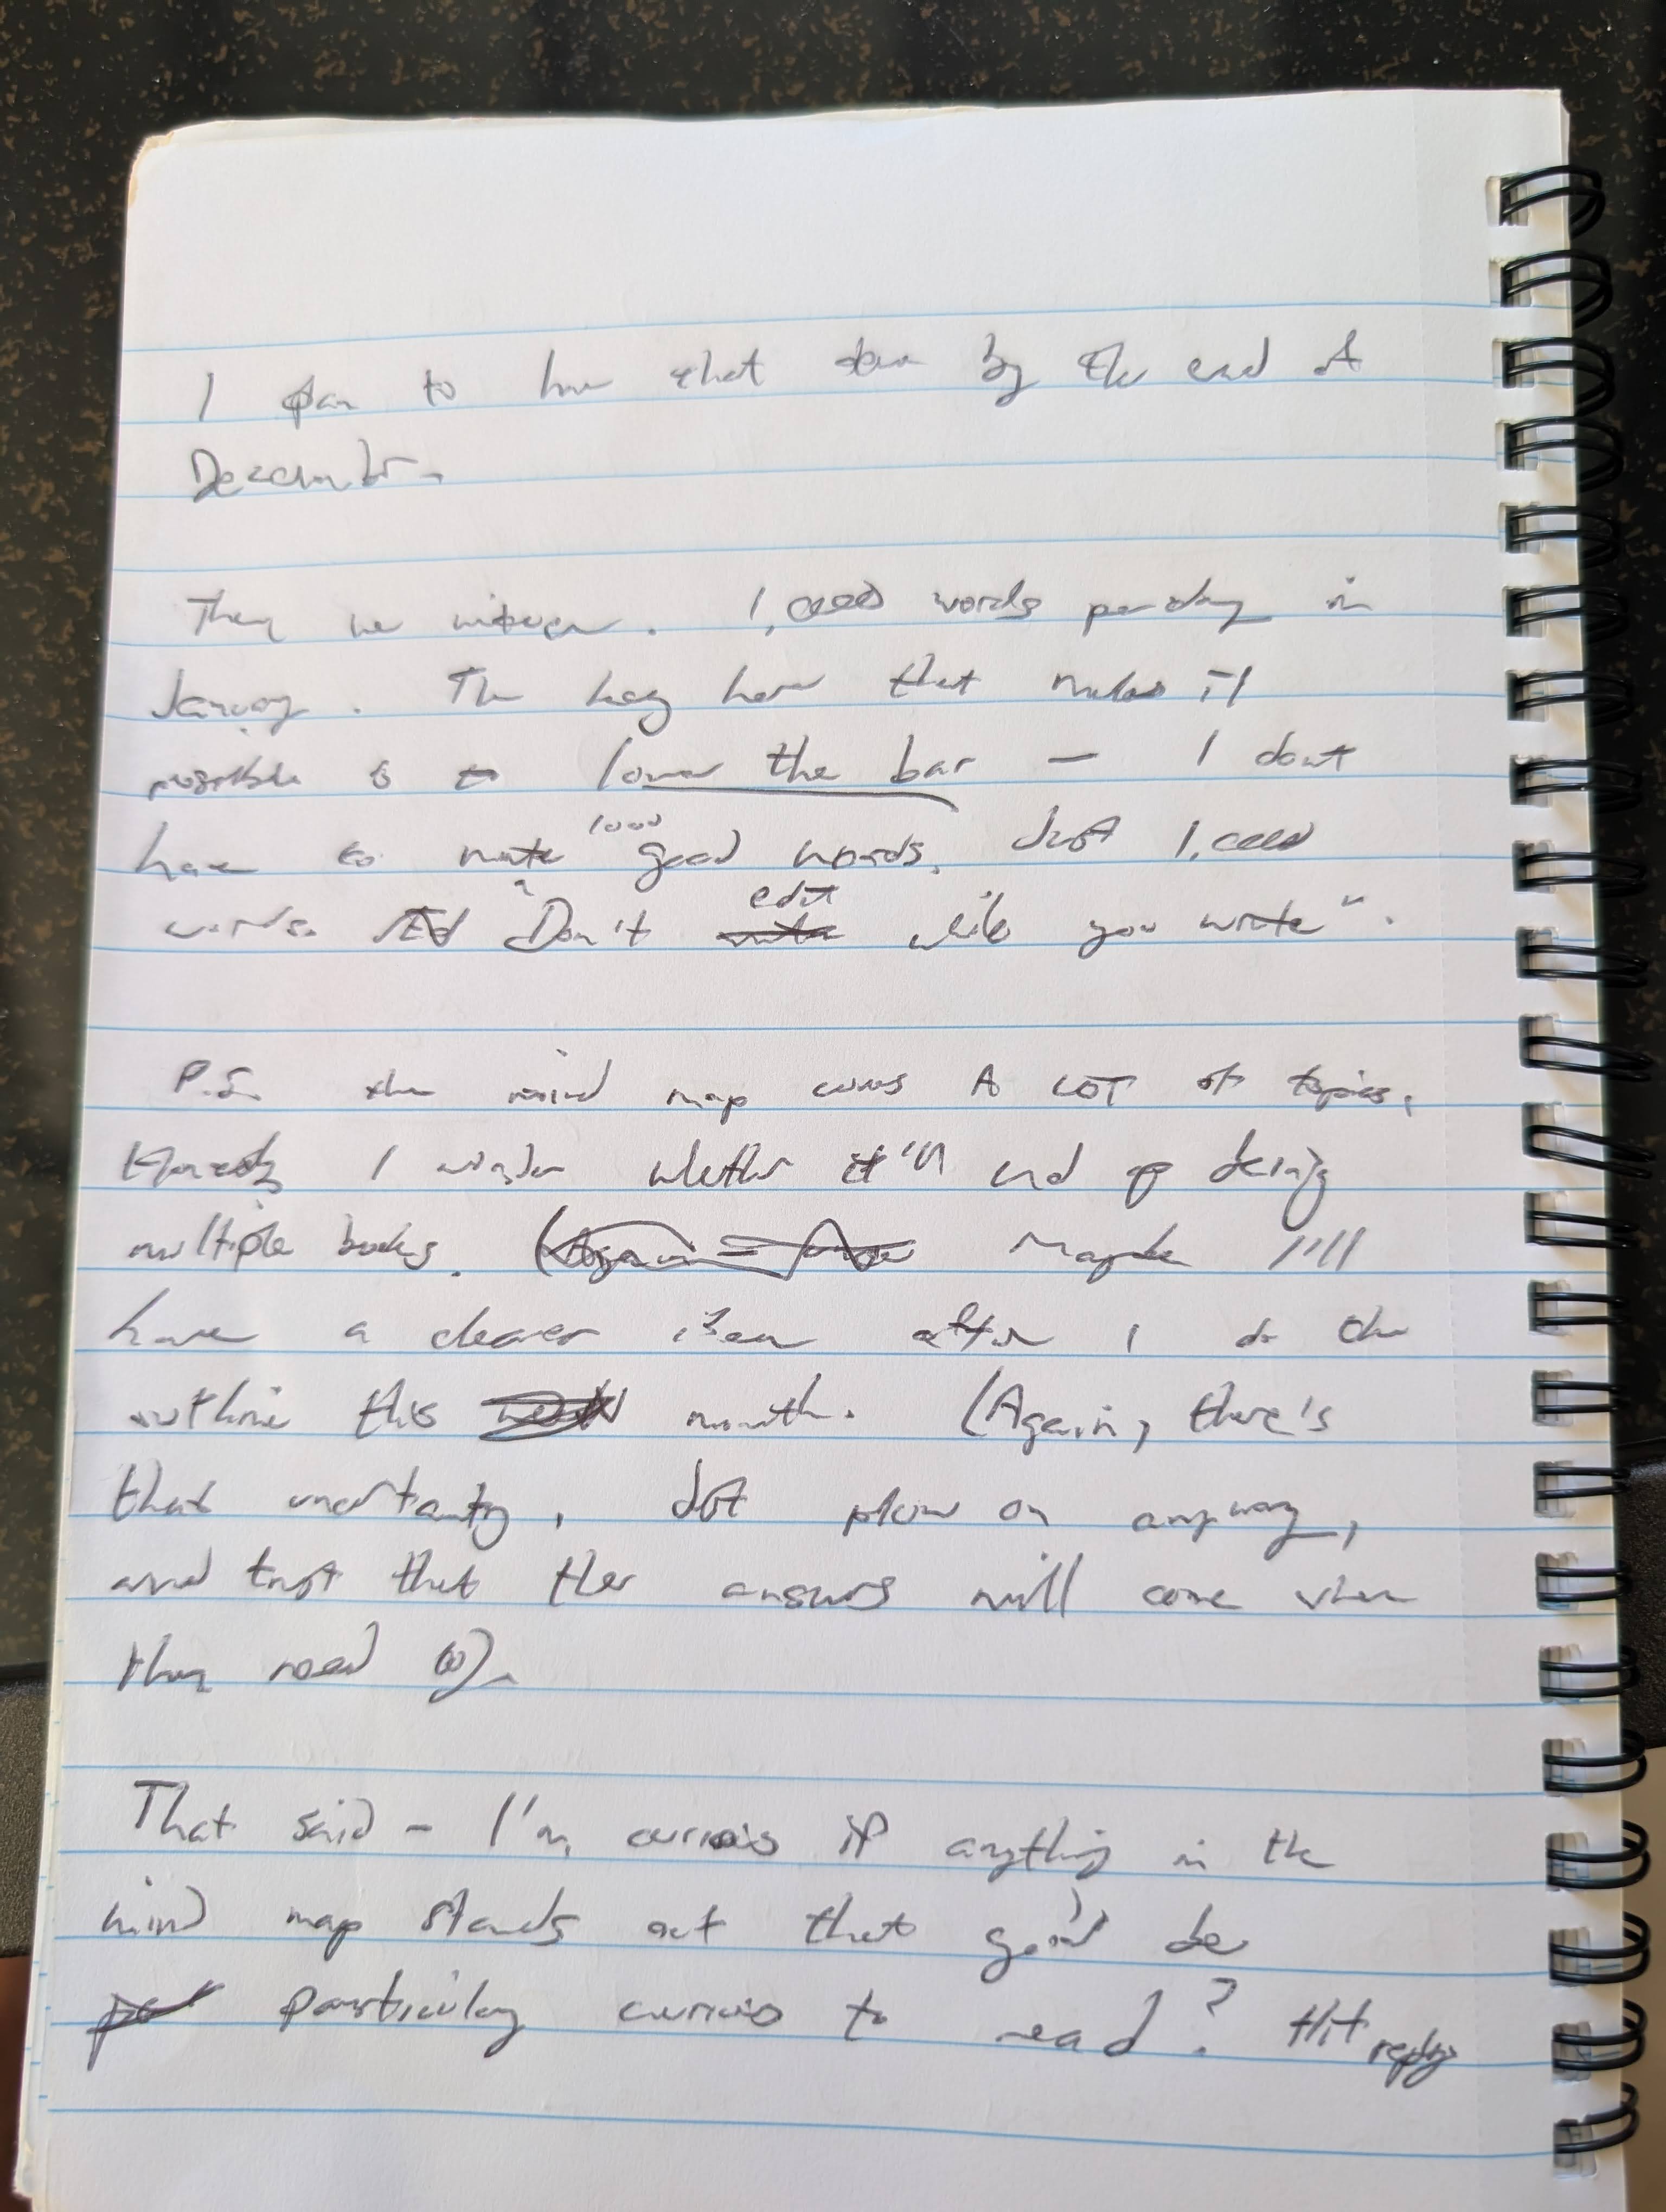 I plan to have that done by the end of
December.
Then we write. 1,000 words per day in
January. The key here that makes it
possible is to lower the bar — I don't
have to write 1000 good words. Just 1,000
words. "Don't edit while you write".
P.S. the mind map covers A LOT of topics.
Honestly I wonder whether it'll end up being
multiple books. Maybe I'll
have a clearer idea after I do the
outline this month. (Again, there's
that uncertainty. Just plow on anyway,
and trust that the answers will come when
they need to).
That said - I'm curious if anything in the
mind map stands out that you'd be
particularly curious to read? Hit reply